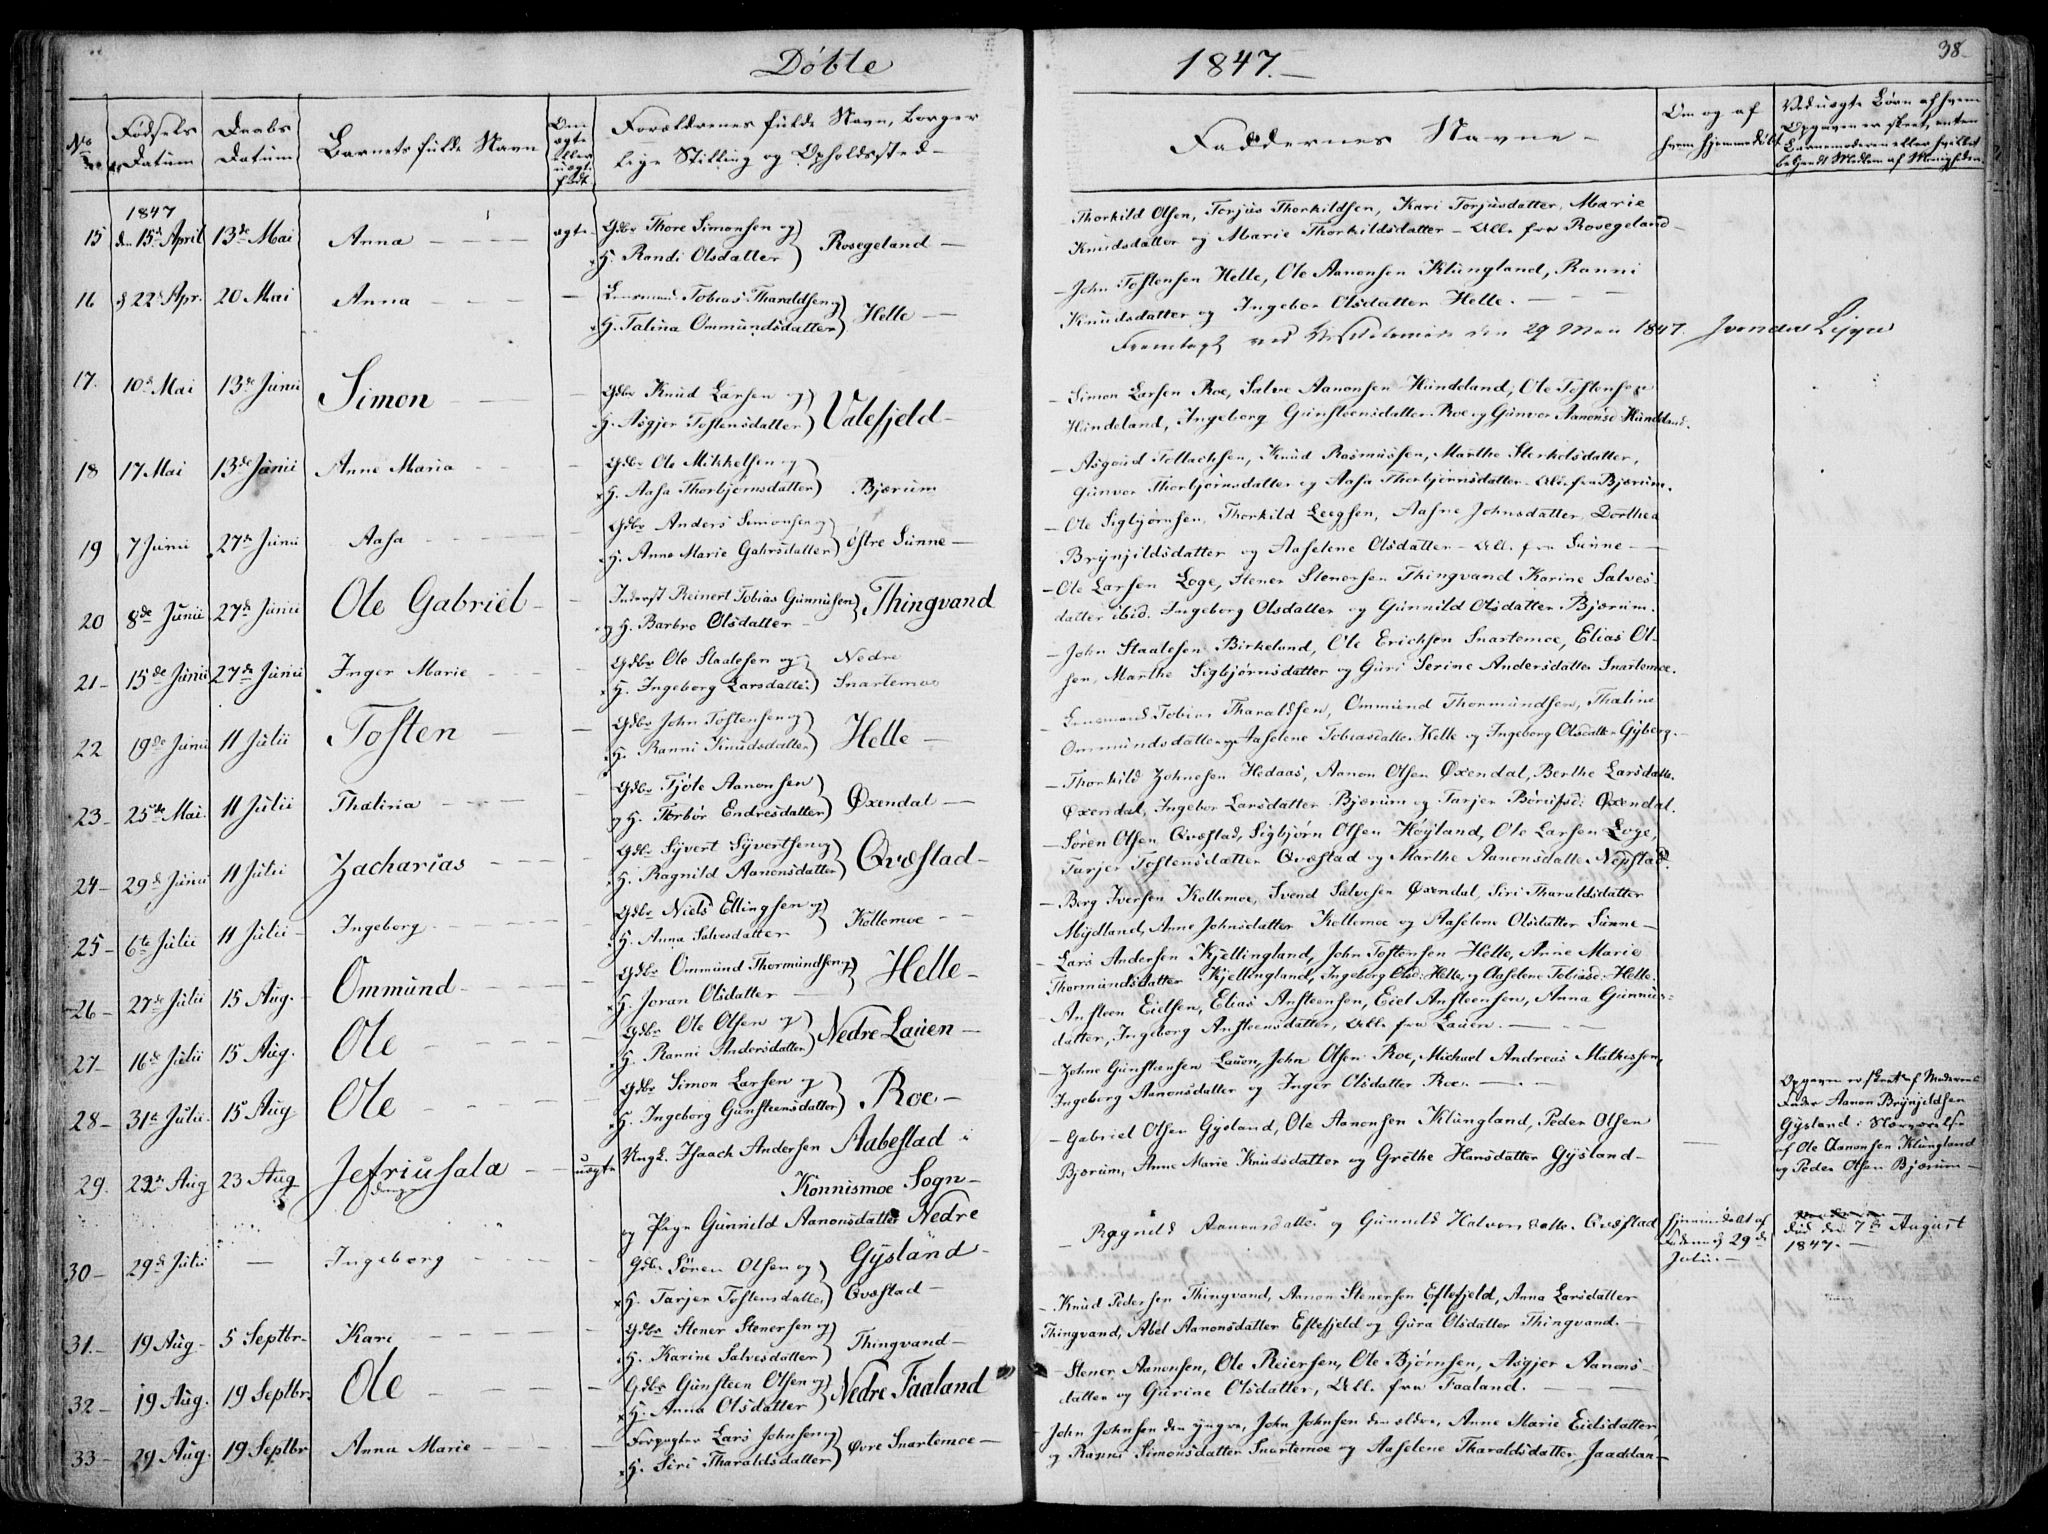 Döbte 1847.
38
No
Fødsels Datum
Daabs Datum
Barnets fulde Navn
Om ægte eller uægte født
Forældrenes fulde Navn, borgerlige Stilling og Opholdssted
Faddernes Navne
Om og af hvem hjemmedøbt
Ved uægte Børn af hvem Opgaven er skeet, enten Barnemoderen eller hvilket bekjendt Medlem af Menigheden
1847
15 den 15de April 13de Mai Anna ægte Gdbr Thore Simonsen og
H. Randi Olsdatter Rosegeland
Thorkild Olsen, Torjus Thorkildsen, Kari Torjusdatter, Marie
Knudsdatter og Marie Thorkildsdatter – Alle fra Rosegeland –
16 d 22 Apr. 20 Mai Anna Lensmand Tobias Tharaldsen og
H. Talina Ommundsdatter Helle
John Tostensen Helle, Ole Aanonsen Klungland, Ranni
Knudsdatter og Ingebor Olsdatter Helle.
den 29 1847.
17. 10de Mai 13de Junii Simon Gdbr Knud Larsen og
H. Asgjer Tostensdatter Valefjeld
Simon Larsen Roe, Salve Aanonsen Hundeland, Ole Tostensen
Hundeland, Ingeborg Gunsteensdatter Roe og Gunvor Aanonsd Hundeland.
18 17 Mai 13de Junii Anne Maria Gdbr Ole Mikkelsen og
H. Aasa Thorbjørnsdatter Bjærum
Asgoud Tollachsen, Knud Rasmussen, Marthe Sterkelsdatter,
Gunvor Thorbjørnsdatter og Aasa Thorbjørnsdatter – Alle fra Bjærum.
19 7 Junii 27de Junii Aasa Gdbr Anders Simonsen og
H. Anne Marie Gahrsdatter Østre Sunne
Ole Sigbjørnsen, Thorkild Leegsen, Aasne Johnsdatter, Dorthea
Brynjildsdatter og Aaselene Olsdatter – Alle fra Sunne
20 8de Junii 27de Junii Ole Gabriel Inderst Reinert Tobias Gunnusen
og H. Barbro Olsdatter Thingvand
Ole Larsen Loge, Stener Stenersen Thingvand Karine Salves-
datter ibid. Ingeborg Olsdatter og Gunnild Olsdatter Bjærum.
21 15de Junii 27de Junii Inger Marie Gdbr Ole Staalesen og
H. Ingeborg Larsdatter Nedre Snartemoe
John Staalesen Birkeland, Ole Erichsen Snartemoe, Elias Ol-
sen, Marthe Sigbjørnsdatter og Guri Serine Andersdatter Snartemoe.
22 19de Junii 11 Julii Tosten Gdbr John Tostensen og
H. Ranni Knudsdatter Helle
Lensmand Tobias Tharaldsen, Ommund Thormundsen, Thaline
Ommundsdatter og Aaselene Tobiasdatter Helle og Ingeborg Olsdatter Gyberg.
23 25de Mai 11 Julii Thalina Gdbr Tjöte Aanonsen
og H. Torbör Endresdatter Øxendal
Thorkild Johnesen Hedaas, Aanon Olsen Øxendal, Berthe Larsdatter
Øxendal, Ingebor Larsdatter Bjærum og Tarjer Börufsd: Øxendal.
24 29de Junii 11 Julii Zacharias Gdbr Syvert Syvertsen og
H. Ragnild Aanonsdatter Qvæstad
Søren Olsen Qvæstad, Sigbjørn Olsen Høyland, Ole Larsen Loge,
Tarjer Tostensdatter Qvæstad og Marthe Aanonsdatter Nepstad.
25 6te Julii 11 Julii Ingeborg Gdbr Niels Ellingsen og
H. Anna Salvesdatter Kollemoe
Berg Iversen Kollemoe, Svend Salvesen Øxendal, Siri Tharaldsdatter
Mydland, Anne Johnsdatter Kollemoe og Aaselene Olsdatter Sunne –
26 27de Julii 15 Aug. Ommund Gdbr Ommund Thormundsen og
H. Joran Olsdatter Helle
Lars Andersen Kjellingland, John Tostensen Helle, Anne Marie
Thormundsdatter Kjellingland, Ingeborg Olsd: Helle, og Aaselene Tobiasd: Helle.
27 16de Julii 15 Aug. Ole Gdbr Ole Olsen og
H. Ranni Andersdatter Nedre Lauen
Ansteen Eielsen, Elias Ansteensen, Eiel Ansteensen, Anna Gunnus-
datter, Ingeborg Ansteensdatter, Alle fra Lauen.
28 31te Julii 15 Aug Ole Gdbr Simon Larsen og
H. Ingeborg Gunsteensdatter Roe
Johne Gunsteensen Lauen, John Olsen Roe, Michael Andreas Mathissen,
Ingeborg Aanonsdatter og Inger Olsdatter Roe.
29. 22de Aug 23 Aug Jefriusala uægte Ungk. Isaach Andersen Aabestad i
Konnismoe Sogn
og Pige Gunnild Aanonsdatter Nedre Gysland
Gabriel Olsen Gysland, Ole Aanonsen Klungland, Peder Olsen
Bjærum, Anne Marie Knudsdatter og Grethe Hansdatter Gysland –
Opgaven er skeet af Moderens
Fader Aanon Brynjeldsen
Gysland i Nærværelse
af Ole Aanonsen Klungland
og Peder Olsen Bjærum –
30 29de Julii – Ingeborg Gdbr Søren Olsen og
H. Tarjer Tostensdatter Qvæstad
Ragnild Aanonsdatter og Gunnild Halvorsdatter Qvæstad
hjemmedøbt af
Faderen d 29de
Julii. –
Død den 7de August
1847. –
31. 19 Aug 5 Septbr. Kari Gdbr Stener Stenersen og
H. Karine Salvesdatter Thingvand
Knud Pedersen Thingvand, Aanon Stenersen Eftefjeld, Anna Larsdatter
Thingvand, Abel Aanonsdatter Eftefjeld og Gura Olsdatter Thingvand.
32 19 Aug. 19 Septbr. Ole Gdbr Gunsteen Olsen og
H. Anna Olsdatter Nedre Faaland
Stener Aanonsen, Ole Reiersen, Ole Bjørnsen, Asgjer Aanons-
datter og Gurine Olsdatter, Alle fra Faaland.
33 29 Aug. 19 Septbr Anna Marie Forpagter Lars Johnsen og
H. Siri Tharaldsdatter Øvre Snartemoe
John Johnsen den yngre, John Johnsen den ældre, Anne Marie Eielsdatter,
og Ranni Simonsdatter Snartemoe og Aaselene Tharaldsdatter Jaaddan –